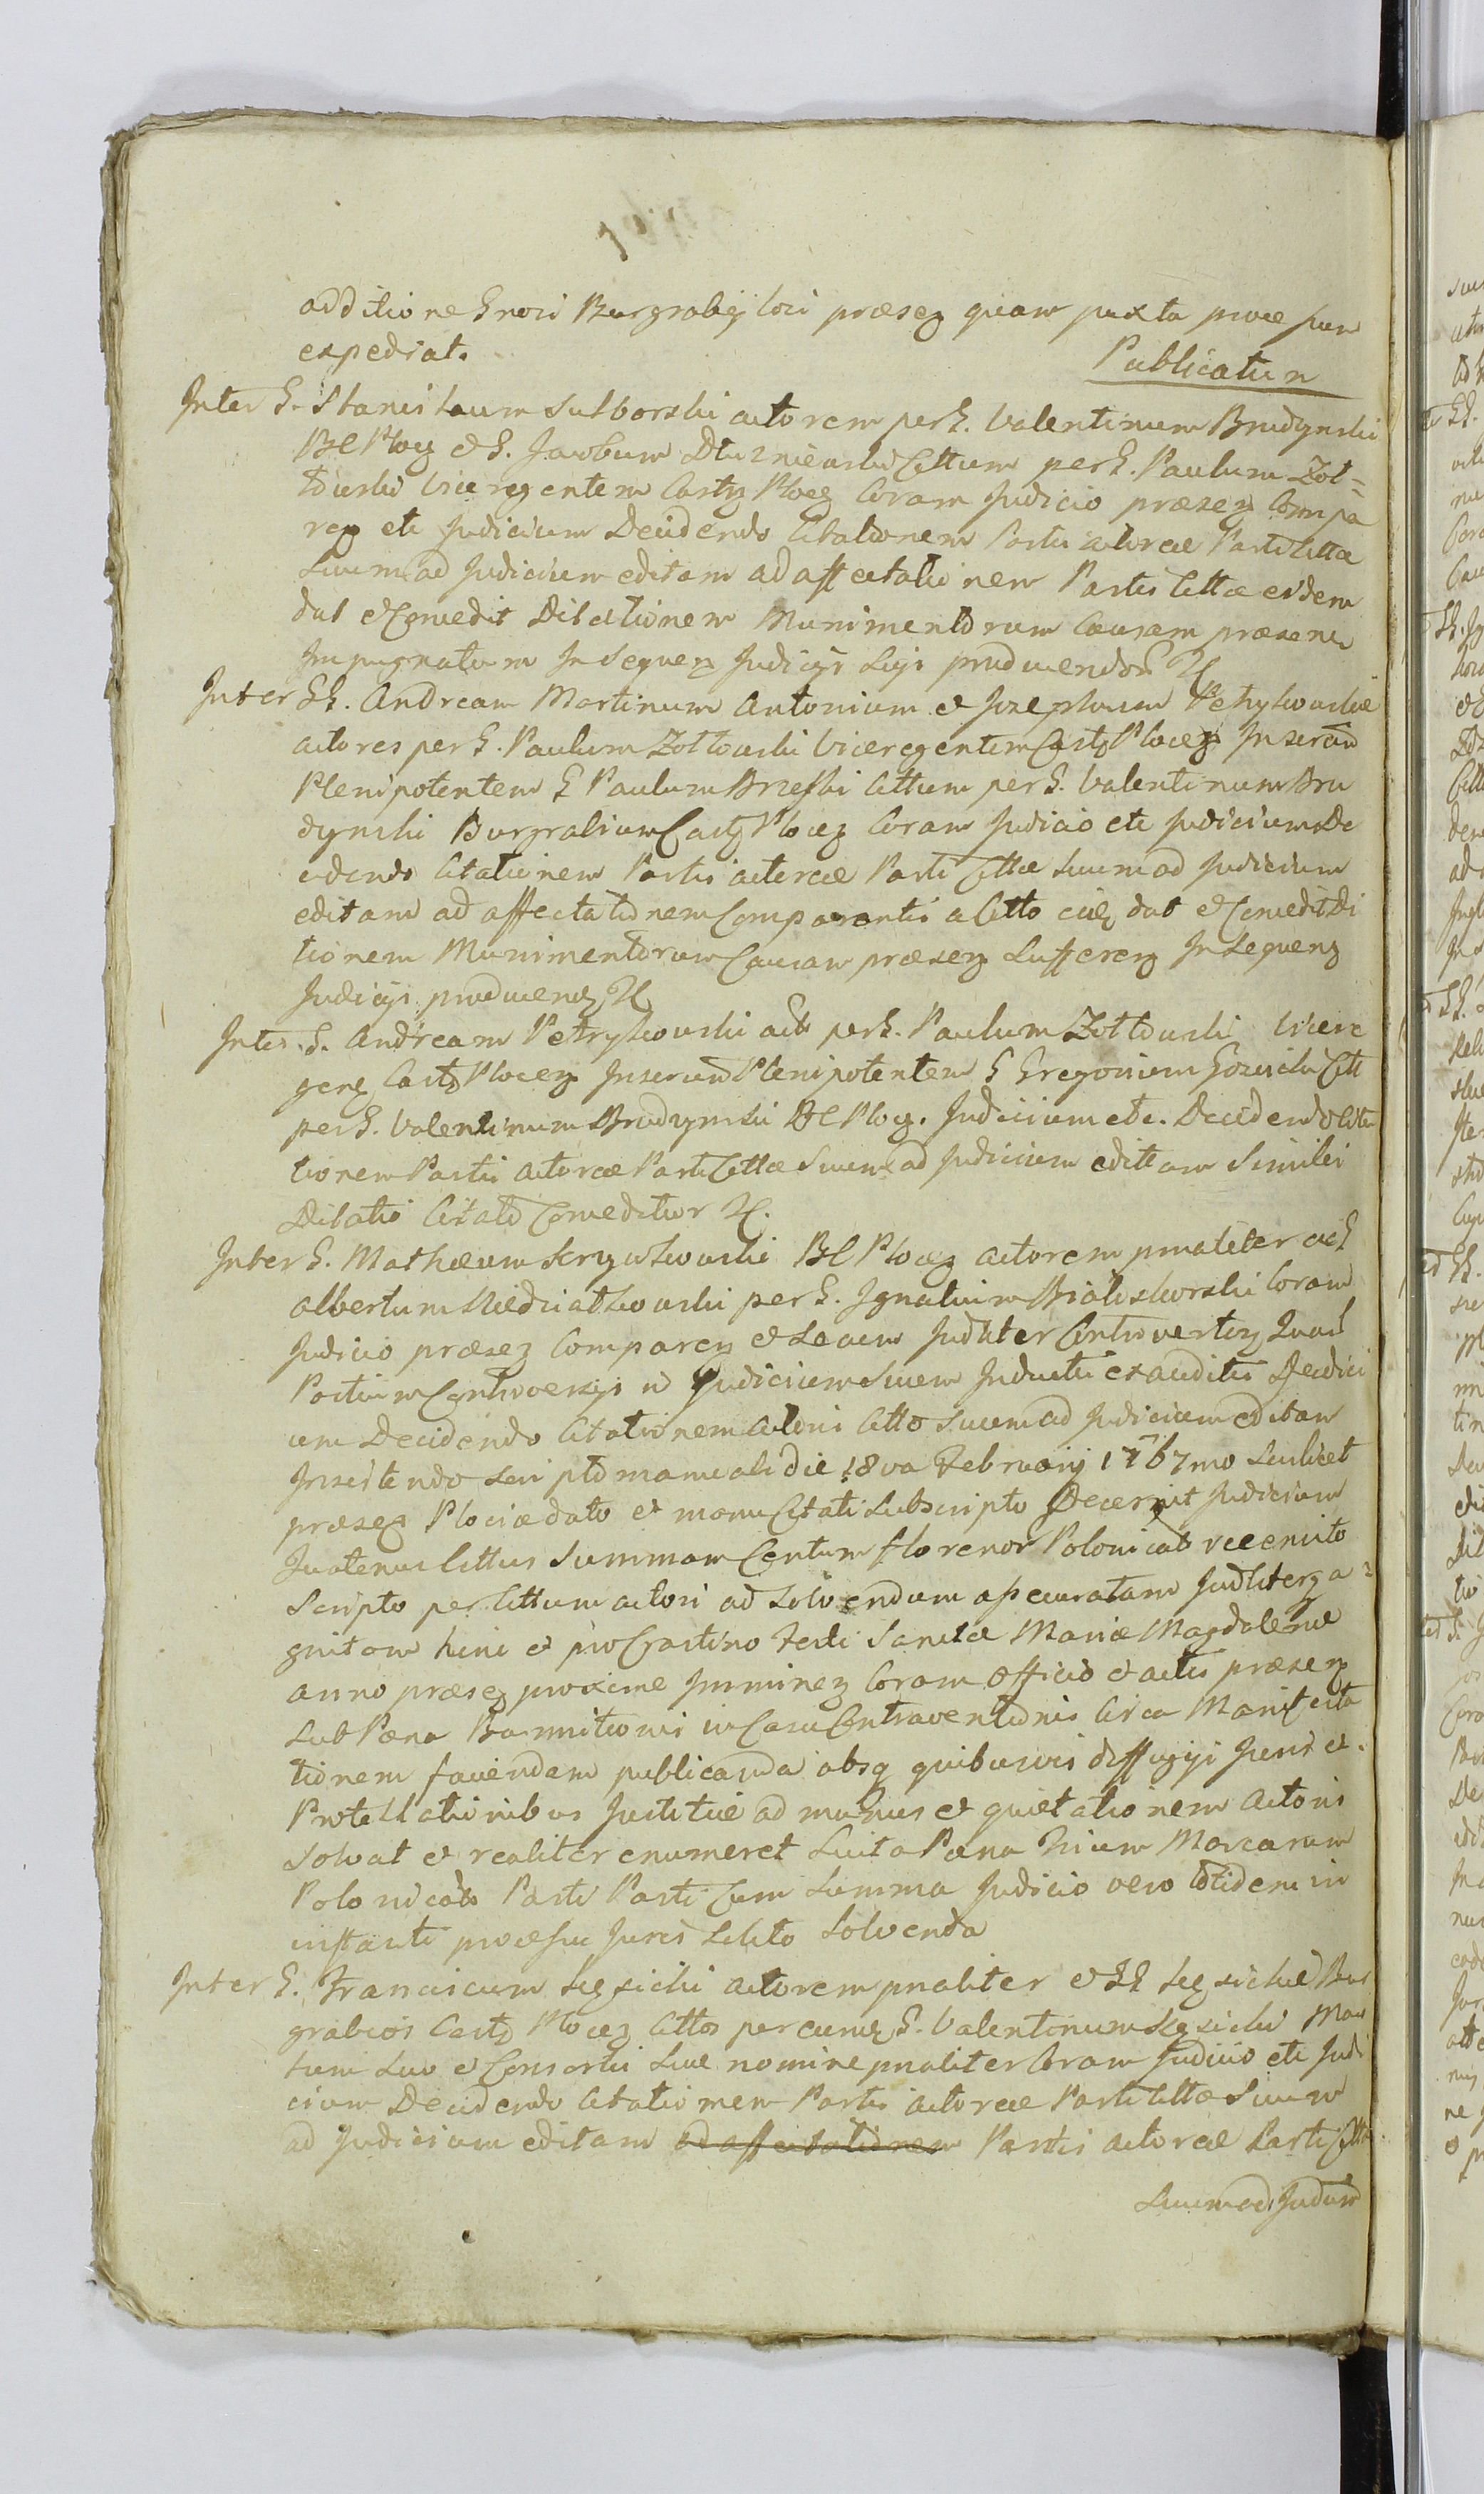 additione Gnosi Burgrabij loci præsez quam juxta processum
expediat.
Publicatum
Inter G. Stanislaum Sulborski actorem per G. Valentinum Brudzynski
BC Ploc et G. Jacobum Dłuzniewski Cittum per G. Paulum Zoł=
towski Viceregentem Castz Plocz Coram Judicio præsez Compa
rez etc Judicium Decidendo Citationem Partis actoreæ Parti Cittæ
Suum ad Judicium editam ad affectationem Partis Cittæ eidem
dat et Concedit Dilationem Munimentorum Causam præsene
Impugnatum In Sequez Judicijs Suji producendor
Inter GG. Andream Martinum Antonium et Josephum Petrykowskie
actores per G. Paulum Zołtowski Viceregentem Castz Plocez Inserum
Plenipotentem G Paulum Brzeski Cittum per G. Valentinum Bru
dzynski Burgrabium Castz Plocez Coram Judicio etc Judicium De
cidendo Citationem Partis actoreæ Parti Cittæ Suum ad Judicium
editam ad affectationem Comparentis a Citto eidez dat et Concedit Di
tionem Munimentorum Causam præsez Sufferez In Sequenz
Judicijs producenz
Inter G. Andream Petrykowski act per G. Paulum Zołtowski Vicere
genz Castz Plocez Inserum Plenipotentem G Gregorium Gozicki Citt
per G. Valentinum Brudzynski BC Ploc. Judicium etc. Decidendo Cita
tionem Partis actoreæ Parti Cittæ Suum ad Judicium editam Similis
Dilatio Citato Conceditur
Inter G. Mathæum Krzykowski BC Plocz actorem pnaliter et G
Albertum Niedziałkowski per G. Ignatium Białoskorski Coram
Judicio præsez Comparez et Se acum Judliter Controvertez Quar
Partium Controversijs in Judicium Suum Inductis exauditis Judici
um Decidendo Citationem actoris Citto Suum ad Judicium editam
Insistendo Scripto manuali die 18va Februarij 1767mo Scilicet
præsez Plociæ dato et manu Citati Subscripto Decernit Judicium
Quatenus Cittus Summam Centum florenor Polonical recensito
Scripto per Cittum actori ad Solvendum assecuratam Judliterz a
gnitam hinc et pro Crastino Festi Sanctæ Mariæ Magdalenæ
anno præsez proxime Imminez Coram Officio et actis præsez
Sub Pæna Bannitionis in Casu Contraventionis Circa Manifesta
tionem faciendam publicanda absq quibusvis diffugijs Juris et
Protestationibus Justitiæ ad manus et quietationem Actoris
Solvat et realiter enumeret Luita Pæna Trium Marcarum
Polonicali Parti Parti Cum Summa Judicio vero totidem in
instanti processu Juris Solito Solvenda
Inter G. Franciscum Legzicki actorem pnaliter et GG Legzickie Bur
grabios Castz Plocez Cittos per eumz G. Valentinum Legzicki Mar
tum Suo et Consortis Suæ nomine pnaliter Coram Judicio etc Judi
cium Decidendo Citationem Partis actoreæ Parti Cittæ Suum
ad Judicium editam ad affectationem Partis actoreæ Parti Citt
Suum ad Judium